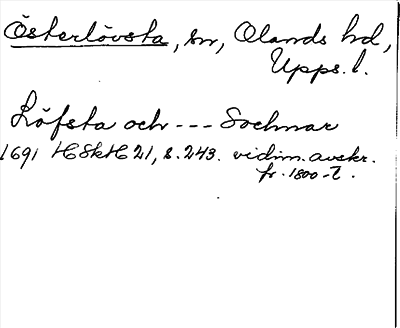 Österlövsta, sn, Olands hd,
Upps. l.
Löfsta och --- Sochnar
1691 HSkH 21, s. 243. vidim. avskr.
fr. 1800-t.